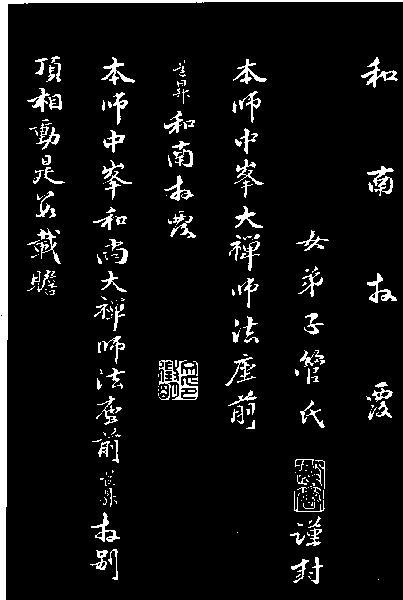 和南拜覆
女弟子管氏謹封
本師中峯大禪師法座前
道昇和南拜覆
本師中峯和尚大禪師法座前道昇拜別
頂相動是數載瞻